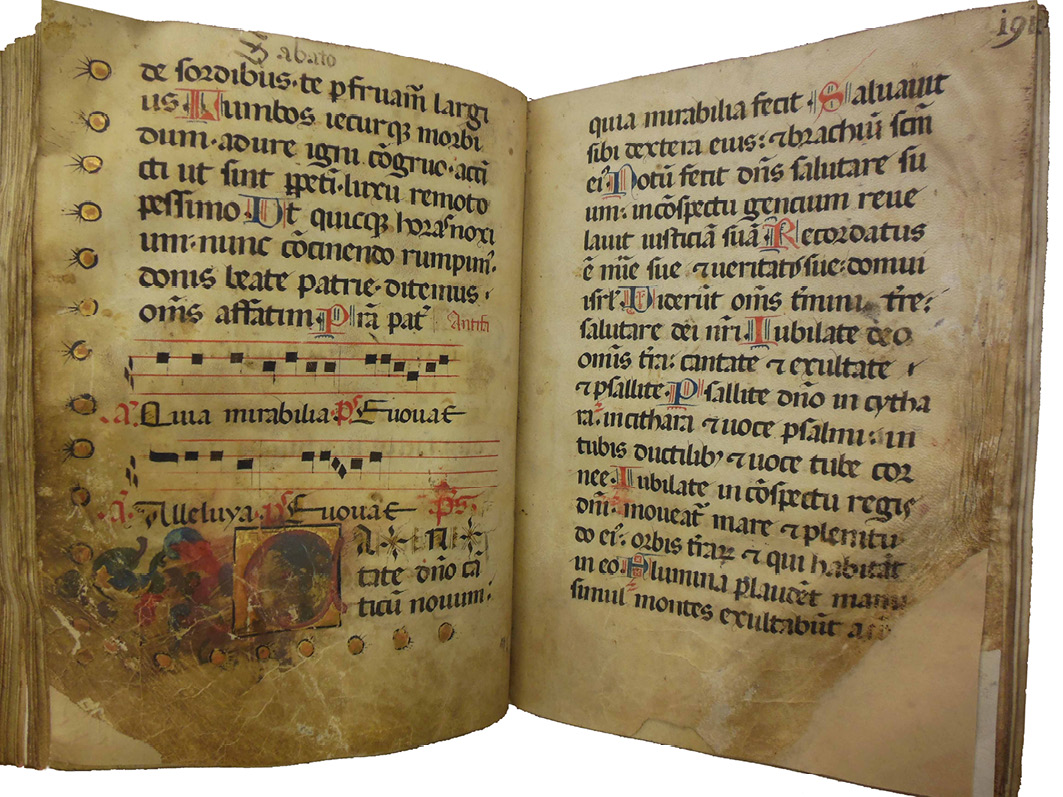 Sabato
de sordibus·te pfruam̄ largi
us Lumbos iecurqꝫ morbi
dum·adure igni cōgruo·acci
cti ut sint ꝑpeti·luxu remoto
pessimo Ut quicqꝫ horas noxi
um·nunc cōcinendo rumpim̄·
donis beate patrie·ditemus·
om̄s affatim Pr̄a pat̄ Antifi
A. Quia mirabilia Ps Euouae
A. Alleluya Ps Euouae Ps
AN
tate dn̄o cā
ticū nouum·
191
quia mirabilia fecit Saluauit
sibi dextera eius: & brachiū scm̄
ei᷒ Notū fecit dn̄s salutare su
um: in cōspectu gencium reue
lauit iusticiā suā Recordatus
ē mīe sue ⁊ ueritatis sue: domui
isrl̄ Uiderūt om̄s t̄mini t̄re:
salutare dei nr̄i Iubilate deo
om̄is t̄ra: cantate & exultate
& psallite Psallite dn̄o in cytha
ra: in cithara & uoce psalmi: in
tubis ductilibꝫ ⁊ uoce tube cor
nee Iubilate in cōspectu regis
dn̄i: moueat̄ mare & plenitu
do ei᷒: orbis t̄rarꝝ & qui habitāt
in eo Flumina plaudēt manu
simul montes exultabūt a